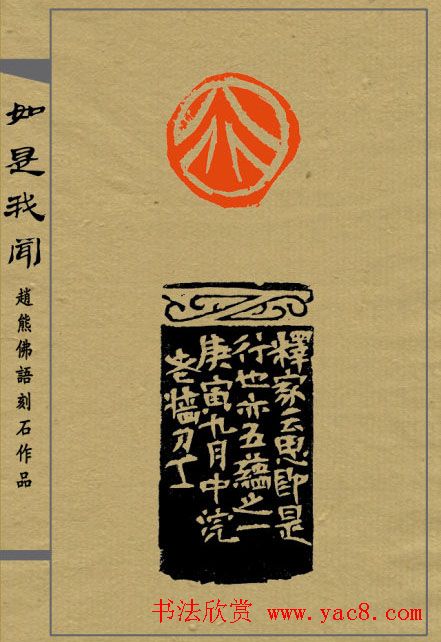 如是我聞
趙熊佛語刻石作品
釋家云思即是
行也亦五蘊之一
庚寅九月中浣
老牆刀工
书法欣赏 www.yac8.com